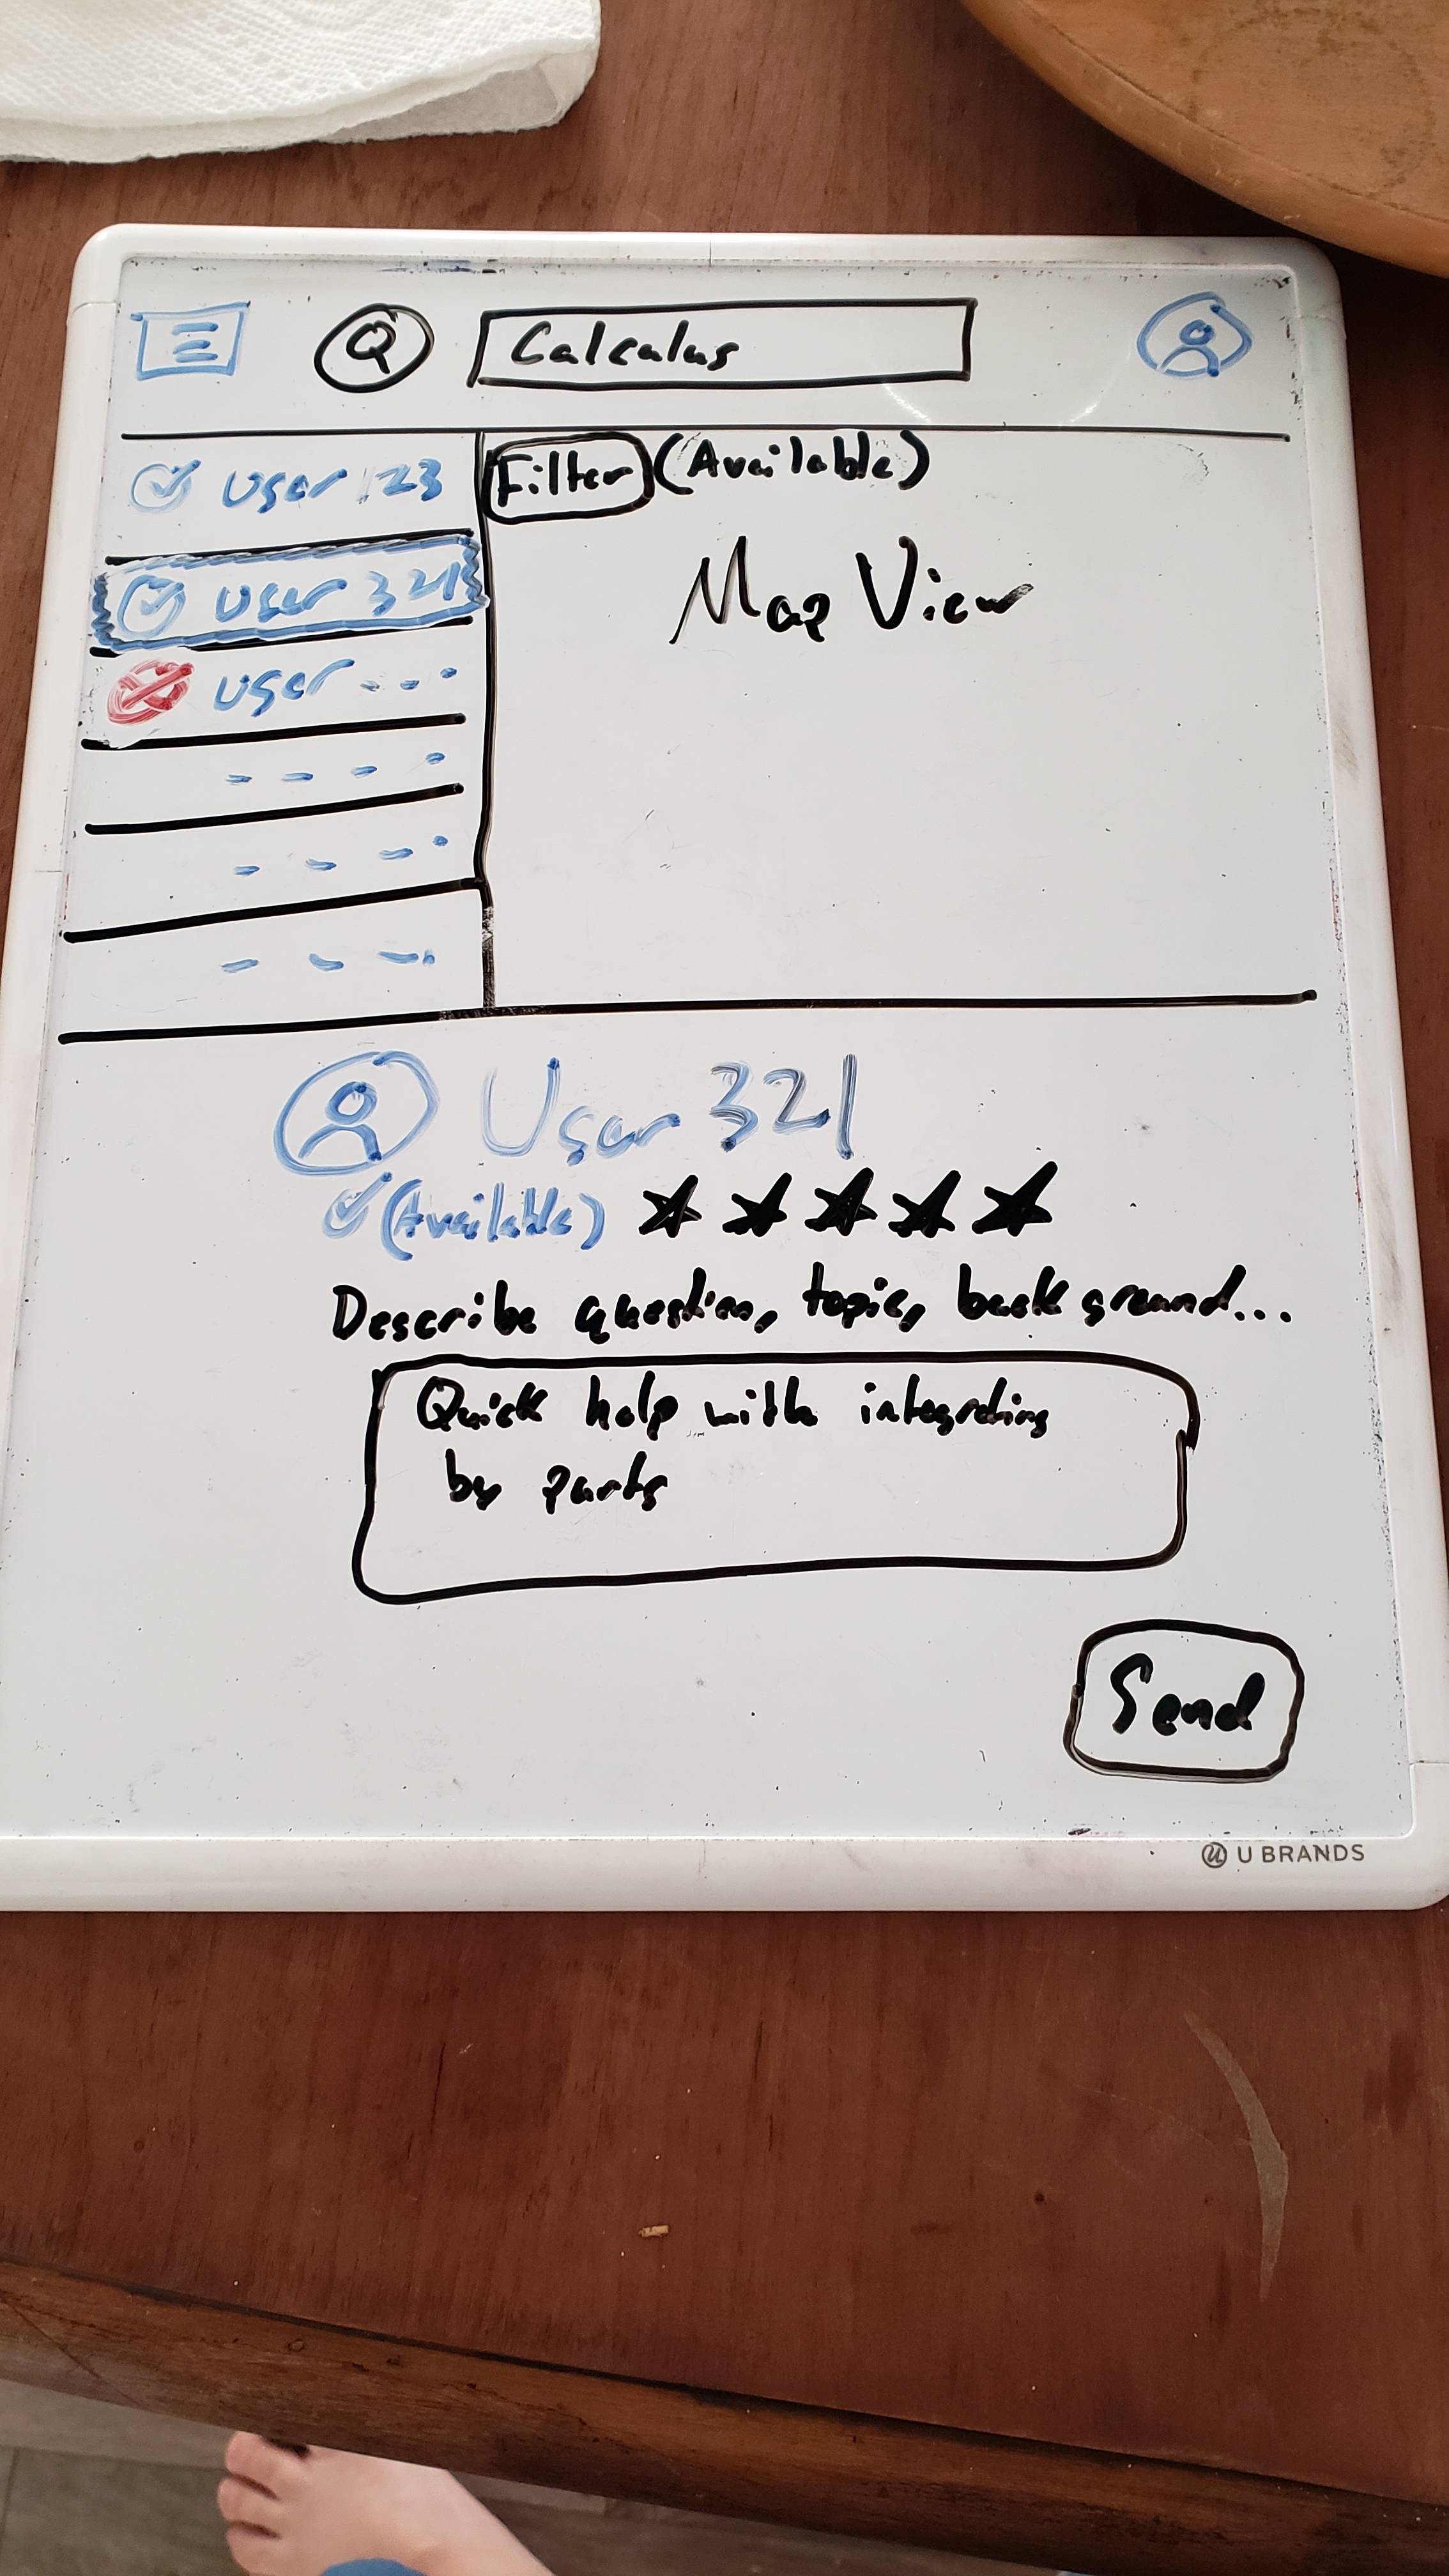 Q Calculus
User 123
Filter (Available)
Map View
User 321
User...
User 321
(Available)
Describe question, topic, background...
Quick help with integrating
by parts
Send
U BRANDS